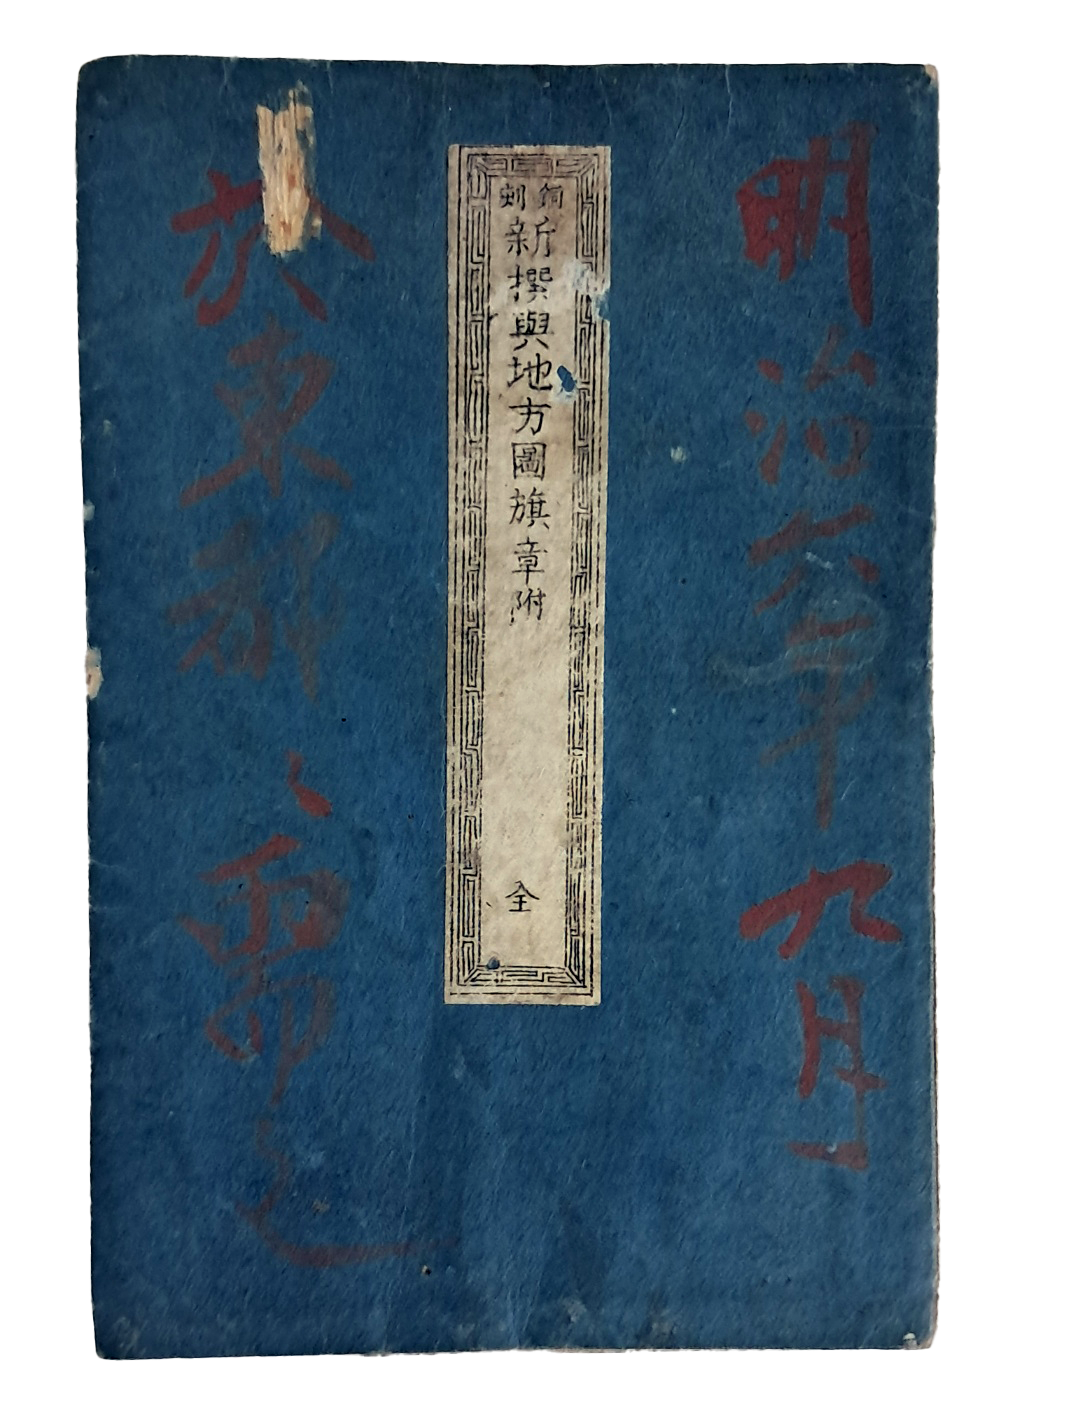 明治六年九月
銅刻
新撰輿地方圖旗章附 全
於東都、需之